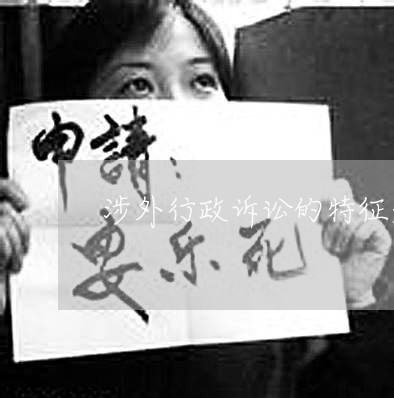 申請：
涉外行政诉讼的特征
要乐死